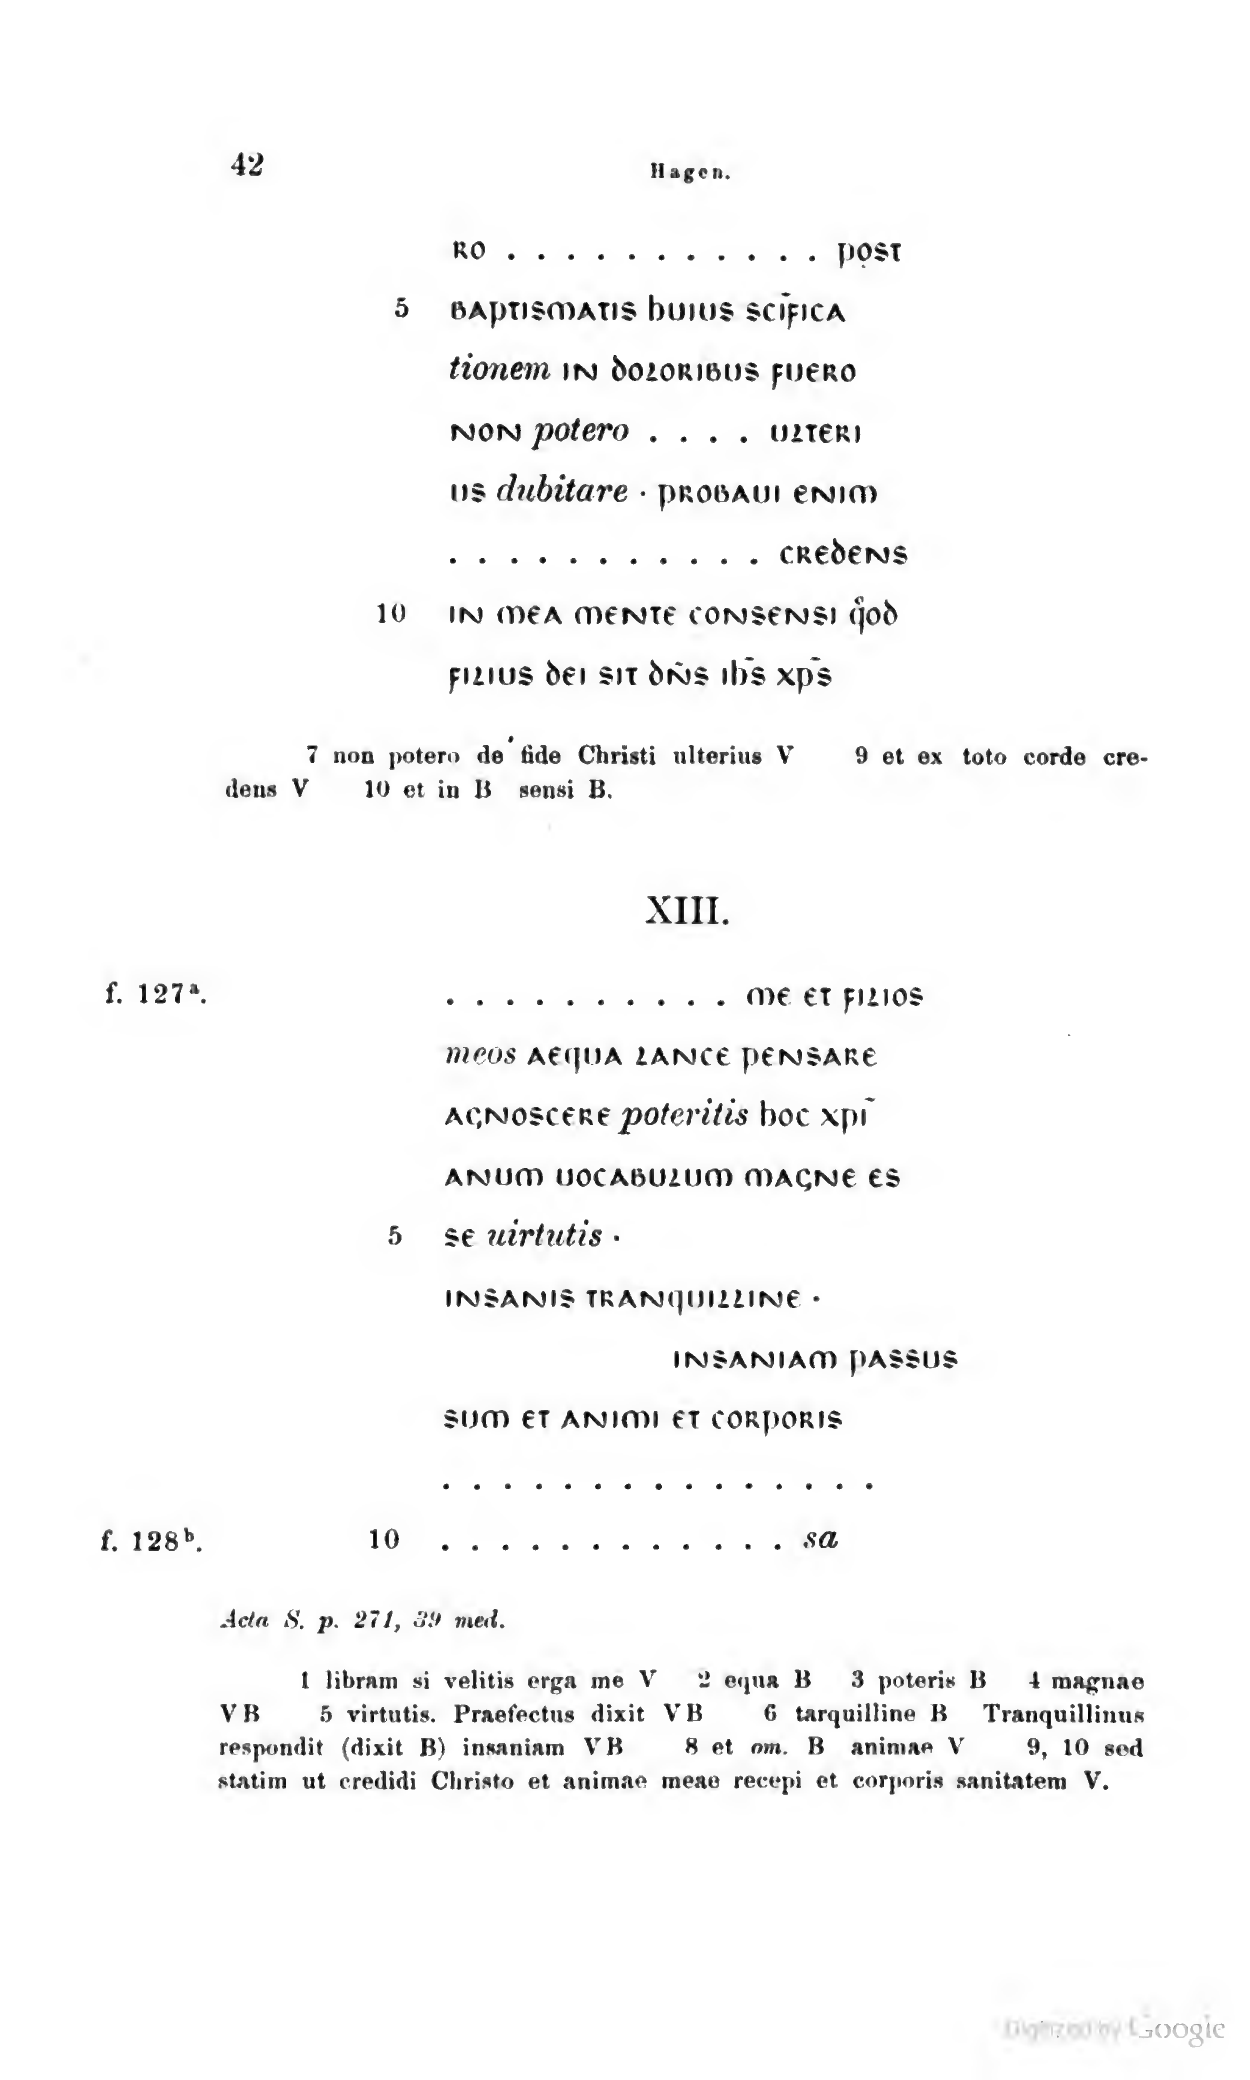 42 Hagen.
RO . . . . . . . . . . . pọst
5 BAPTISMATIS hUIUS SCĪFICA
tionem IN DOLORIBUS FUERO
NON potero . . . . ULTERI
US dubitare · PROBAUI ENIM
. . . . . . . . . . . CREDENS
10 IN MEA MENTE CONSENSI q̊OD
FILIUS DEI SIT DN̄S Ih̄S XP̄S
7 non potero de fide Christi ulterius V 9 et ex toto corde cre-
dens V 10 et in B sensi B.
XIII.
f. 127ᵃ. . . . . . . . . . . ME ET FILIOS
meos AEQUA LANCE PENSARE
AGNOSCERE poteritis hOC XPĪ
ANUM UOCABULUM MAGNE ES
5 SE uirtutis ·
INSANIS TRANQUILLINE ·
INSANIAM PASSUS
SUM ET ANIMI ET CORPORIS
. . . . . . . . . . . . . . .
f. 128ᵇ. 10 . . . . . . . . . . . . sa
Acta S. p. 271, 39 med.
1 libram si velitis erga me V 2 equa B 3 poteris B 4 magnae
VB 5 virtutis. Praefectus dixit VB 6 tarquilline B Tranquillinus
respondit (dixit B) insaniam VB 8 et om. B animae V 9, 10 sed
statim ut credidi Christo et animae meae recepi et corporis sanitatem V.
Digitized by Google